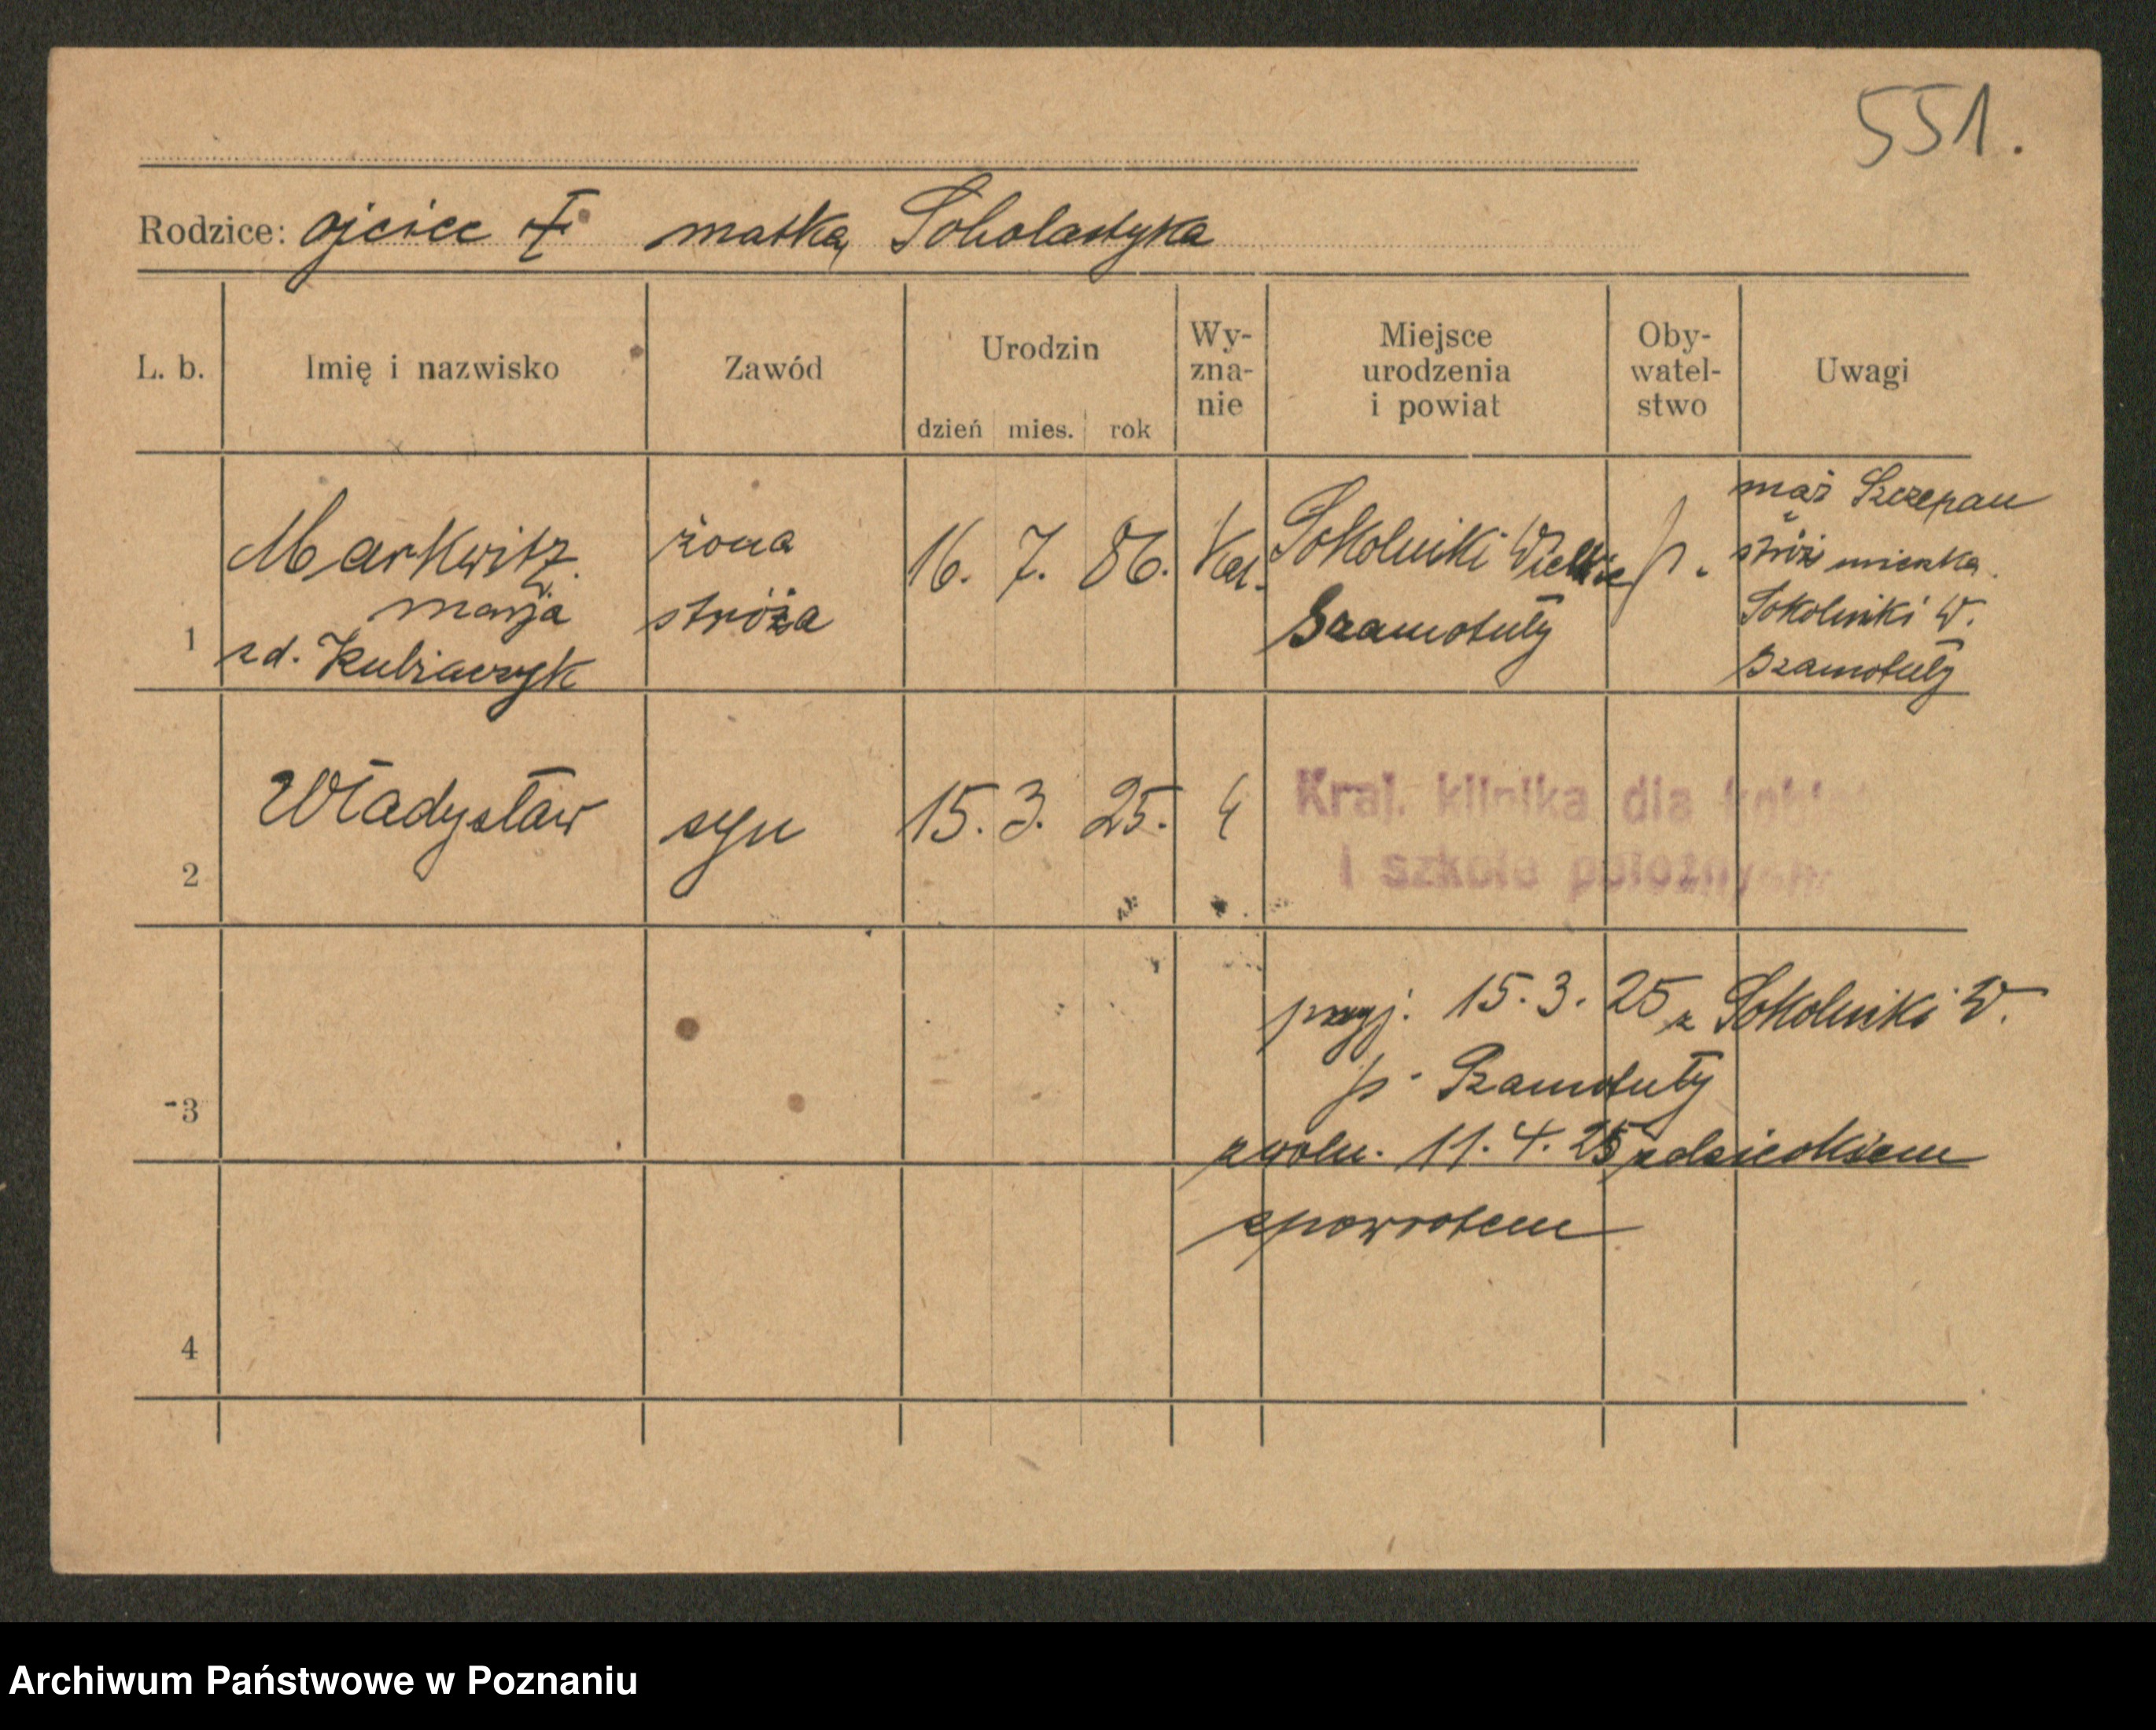 551.
Rodzice: ojciec † matka Scholastyka
L. b. Imię i nazwisko Zawód Urodzin dzień mies. rok Wy-zna-nie Miejsce urodzenia i powiat Oby-watel-stwo Uwagi
1 Markwitz Marja zd. Kubiaczyk
żona stróża
16. 7. 86. Kat.
Sokolniki Wielkie
Szamotuły
p.
mąż Szczepan
stróż mieszka
Sokolniki W.
Szamotuły
2 Władysław syn 15. 3. 25.
Kraj. klinika dla kobi
i szkole położnych
3
przyj. 15. 3. 25 z Sokolniki W.
p. Szamotuły
zwoln. 11. 4. 25 z dzieckiem
zpowrotem
4
Archiwum Państwowe w Poznaniu